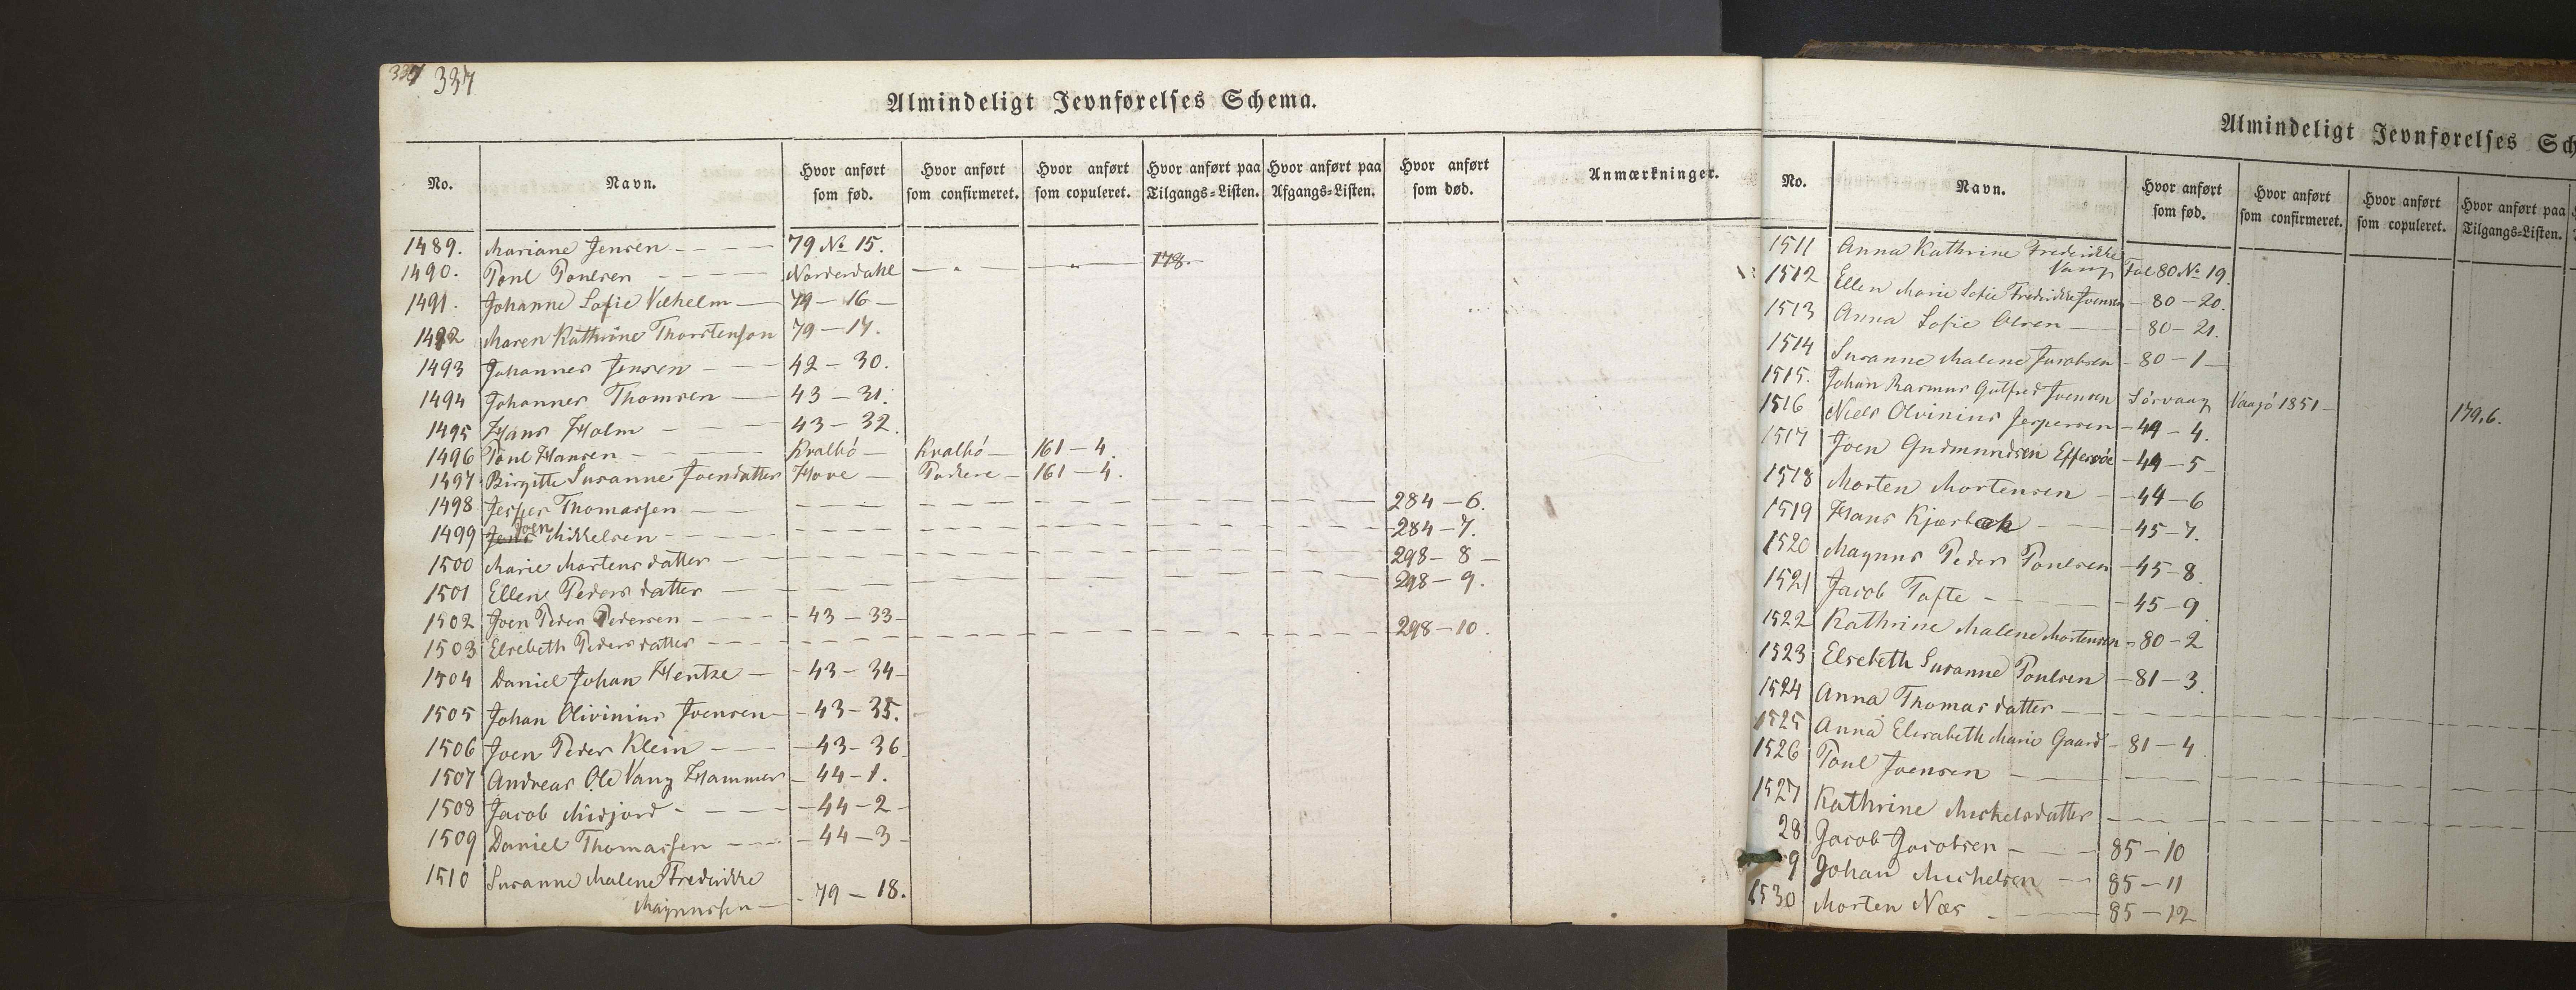 337 337
Almindeligt Jevnførelses Schema.
No. Navn. Hvor anført som fød. Hvor anført som confirmeret. Hvor anført som copuleret. Hvor anført paa Tilgangs-Listen. Hvor anført paa Afgangs-Listen. Hvor anført som død. Anmærkninger.
1489. Mariane Jensen - - - 79 No 15.
1490. Poul Poulsen - - - Norderdahl — " — — " — 178.-
1491. Johanne Sofie Vilhelm — 79 - 16 -
1492 Maren Kathrine Thorstensson 79 - 17.
1493 Johannes Jensen - - - 42 - 30.
1494 Johannes Thomsen — 43 - 31.
1495 Hans Holm - - - 43 - 32.
1496 Poul Hansen - - - Kvalbó - Kvalbó - 161 - 4.
1497 Birgitte Susanne Joensdatter Hove - Porkere - 161 - 4.
1498 Jesper Thomassen - - - 284 - 6.
1499 Jens Joen Mikkelsen - - - 284 - 7.
1500 Marie Mortensdatter - - - 298 - 8 -
1501 Ellen Pedersdatter - - - 298 - 9.
1502 Joen Peder Pedersen - - - 43 - 33 -
1503 Elsebeth Pedersdatter - - - 298 - 10.
1504 Daniel Johan Hentze - - 43 - 34 -
1505 Johan Olivinius Joensen - 43 - 35.
1506 Joen Peder Klein - - - 43 - 36
1507 Andreas Ole Vang Hammer - 44 - 1.
1508 Jacob Midjord - - - 44 - 2 -
1509 Daniel Thomassen - - - 44 - 3 -
1510 Susanne Malene Fredrikke
Magnussen - - 79 - 18.
Almindeligt Jevnførelses Sch
No. Navn. Hvor anført som fød. Hvor anført som confirmeret. Hvor anført som copuleret. Hvor anført paa Tilgangs-Listen.
1511 Anna Kathrine Frederikke
Vang Fol 80 No 19.
1512 Ellen Marie Sofie Fredrikke Joensen - 80 - 20.
1513 Anna Sofie Olsen - - 80 - 21.
1514 Susanne Malene Jacobsen - 80 - 1 -
1515. Johan Rasmus Gutfred Joensen Sórvaag Vaagó 1851 - 179.6.
1516 Niels Olvinius Jespersen - 44 - 4.
1517 Joen Gudmundsen Effersöe - 44 - 5 -
1518 Morten Mortensen - - 44 - 6
1519 Hans Kjærbæk - - - 45 - 7.
1520 Magnus Peder Poulsen - 45 - 8.
1521 Jacob Tofte - - - 45 - 9
1522 Kathrine Malene Mortensen - 80 - 2
1523 Elsebeth Susanne Poulsen - 81 - 3.
1524 Anna Thomasdatter - - -
1525 Anna Elisabeth Marie Gaard - 81 - 4
1526 Poul Joensen - - -
1527 Kathrine Michelsdatter - - -
28 Jacob Jacobsen - - - 85 - 10
9 Johan Michelsen - - 85 - 11
1530 Morten Næs - - - 85 - 12